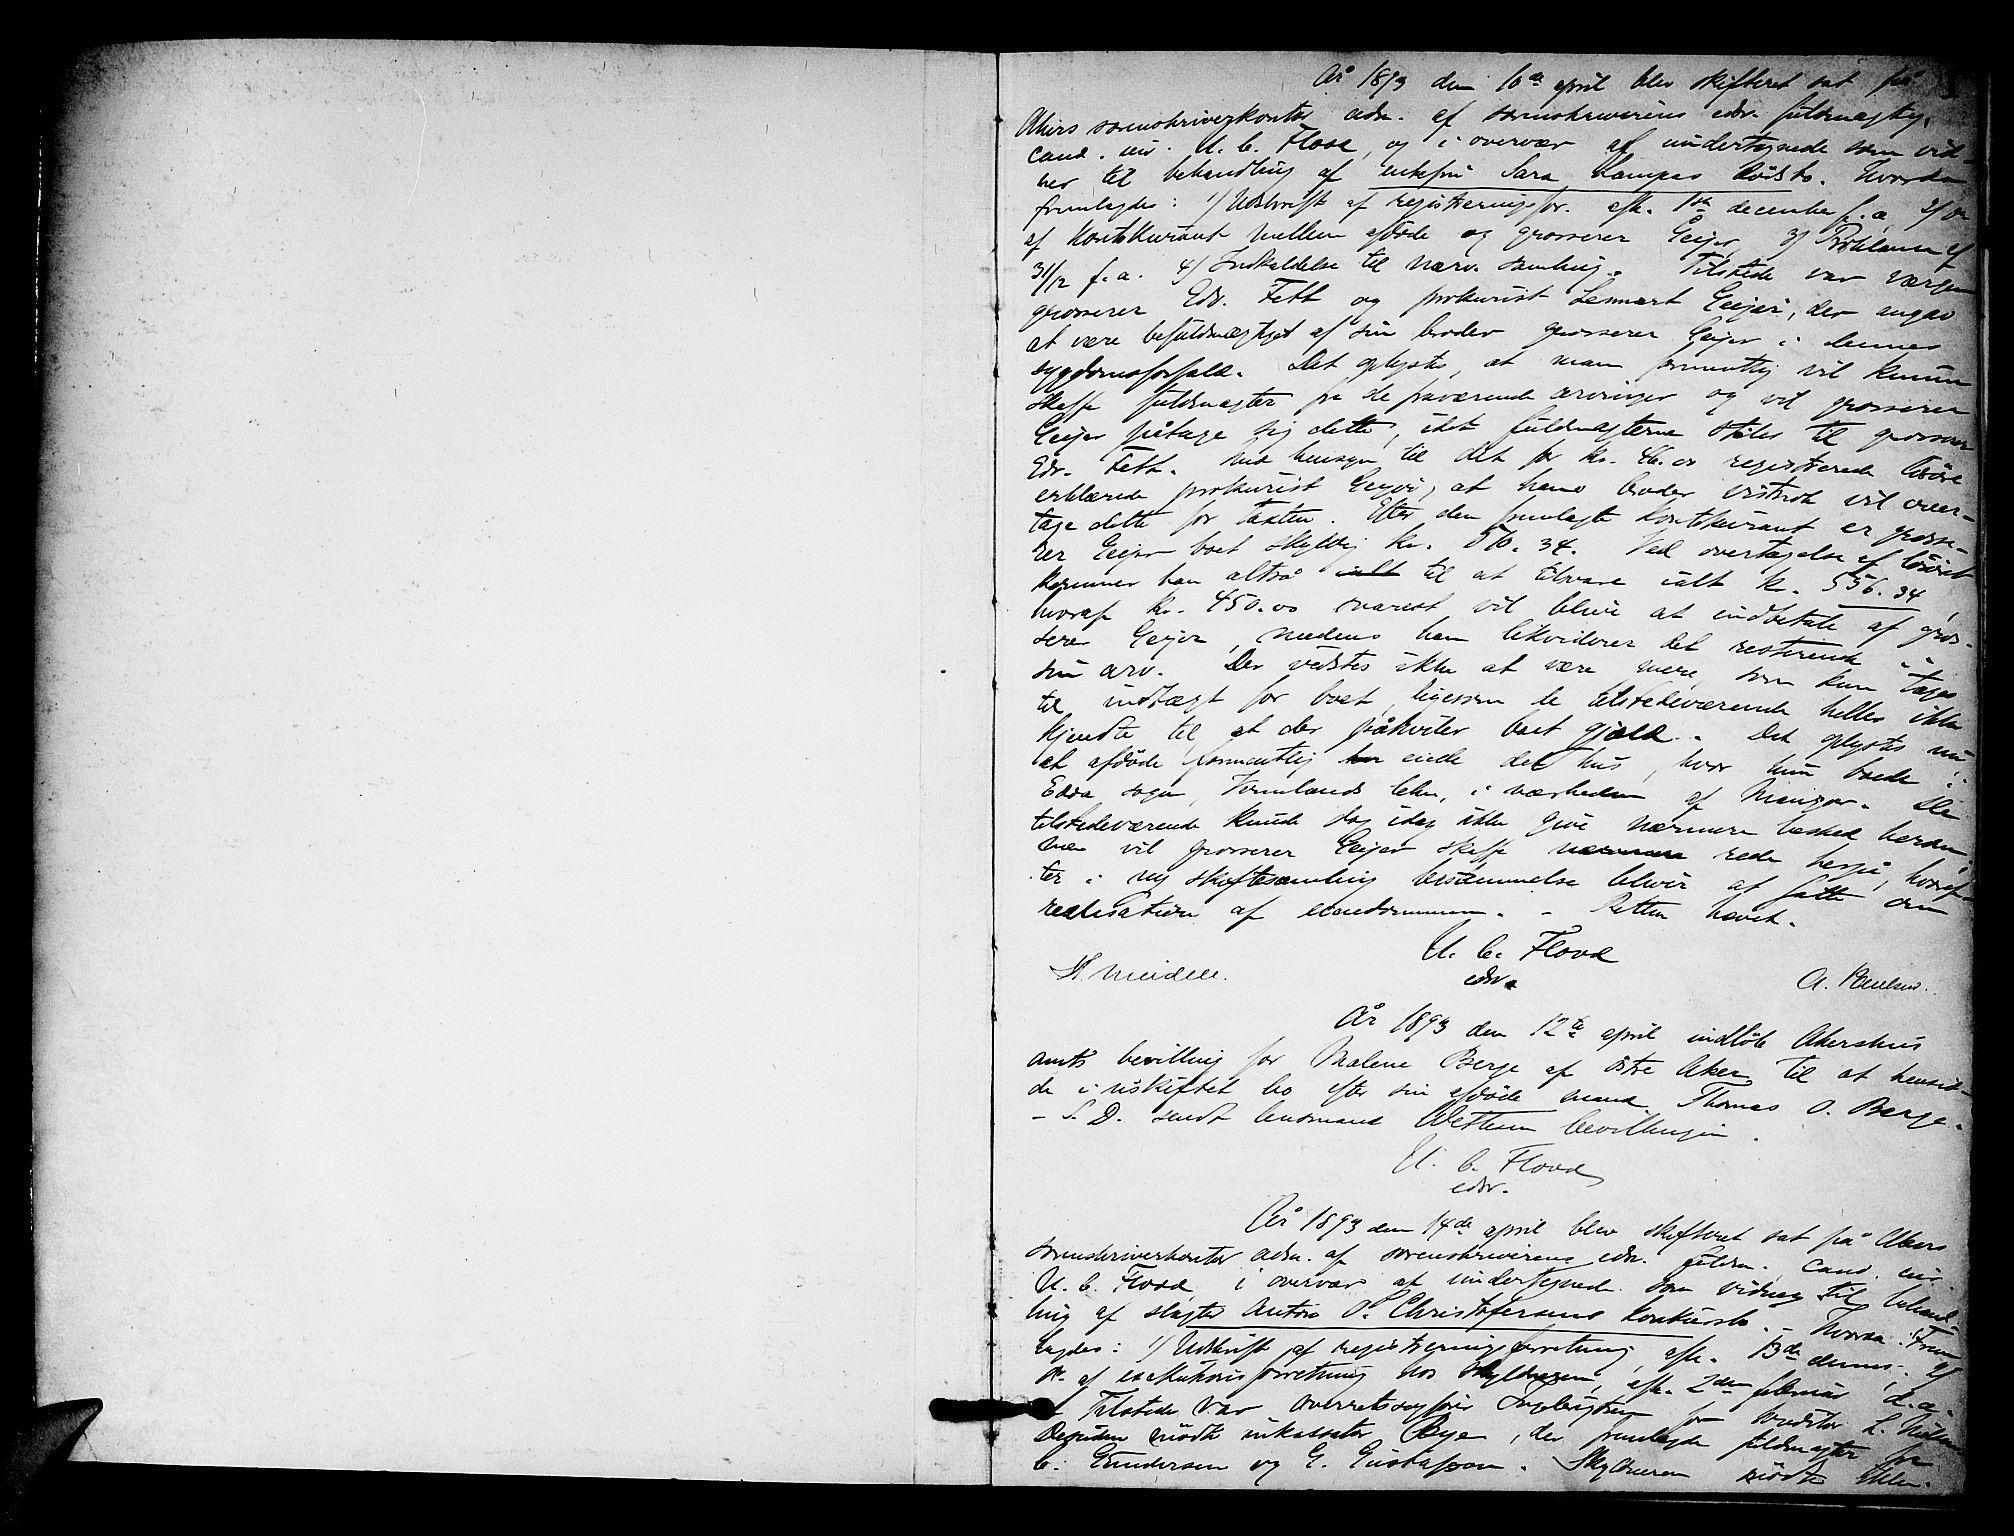 År 1893 den 10de april blev skifteret sat på
Akers sorenskriverkontor adm. af sorenskriverens edsv. fuldmægtig,
cand. jur. U. C. Flood, og i overvær af undertegnede som vid-
ner til behandling af enkefru Sara Kampås dødsbo. Hvorda
fremlagdes: 1/ Udskrift af registreringsfor. afh. 1ste december f. a. 2/ Do
af Kontokurant mellem afdøde og grosserer Geijer, 3/ Proklama af
31/12 f. a. 4/ Indkaldelse til nærv. samling. Tilstede var værgen
grosserer Edv. Fett og prokurist Lennart Geijer, der angav
at være befuldmægtiget af sin broder grosserer Geijer i dennes
sygdomsforfald. Det oplystes, at man formentlig vil kunne
skaffe fuldmagter fra de fraværende arvinger og vil grosserer
Geijer påtage sig dette, idet fuldmagterne stiles til grosserer
Edv. Fett. Med hensyn til det for kr. 46.00 registrerede løsøre
erklærede prokurist Geijer, at hans broder vistnok vil over-
tage dette for taxten. Efter den fremlagte Kontokurant er grosse-
rer Geijer boet skyldig kr. 510.34. Ved overtagelse af løsøret
kommer han altså ialt til at tilsvare ialt kr. 556.34,
hvoraf kr. 450.00 snarest vil blive at indbetale af gros-
serer Geijer, medens han likviderer det resterende i
sin arv. Der vidstes ikke at være mere, som kan tages
til indtægt for boet, ligesom de tilstedeværende heller ikke
kjendte til, at der påhviler boet gjæld. Det oplystes nu,
at afdøde formentlig har eiede det hus, hvor hun boede i
Edda sogn, Vermlands lehn, i nærheden af Mangor. De
tilstedeværende kunde dog idag ikke give nærmere besked herom,
men vil grosserer Geijer skaffe nærmere rede herpå, hvoref-
ter i ny skiftesamling bestemmelse bliver at fatte om
realisation af eiendommen. - Retten hævet.
U. C. Flood
edsv.
H. Meidell. A. Paulsen.
År 1893 den 12te april indløb Akershus
amts bevilling for Malene Berge af østre Aker til at hensid-
de i uskiftet bo efter sin afdøde mand Thomas O. Berge.
- S. D. sendt lensmand Wettesen bevillingen.
U. C. Flood
edsv.
År 1893 den 14de april blev skifteret sat på Akers
sorenskriverkontor adm. af sorenskriverens edsv. fuldm. cand. jur.
U. C. Flood, i overvær af undertegnede som vidner til behand-
ling af slagter Anton P. Christofersens konkursbo. - Hvorda frem-
lagdes: 1/ Udskrift af registreringsforretning, afh. 13de dennes. 2/
Do. af exekutionsforretning hos skyldneren, afh. 2den februar d. a.
Tilstede var overretssagfører Ingebrigtsen for kreditor L. Nielsen
Desuden mødte inkassator Bye, der fremlagde fuldmagter fra
C. Gundersen og G. Gustafson. Skyldneren mødte ikke.